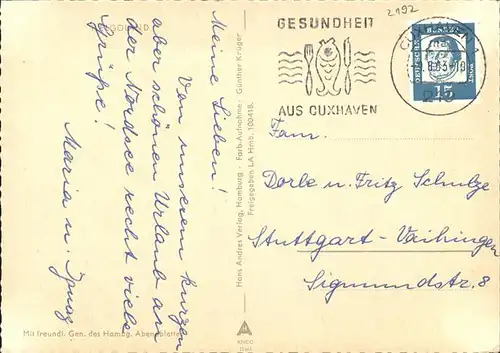 GOLAND
Meine Lieben!
Von unserem kurzen
aber schönen Urlaub an
der Nordsee recht viele
Grüße!
Maria u. Ignaz
Mit freundl. Gen. des Hambg. Abendblattes
Hans Andres Verlag, Hamburg · Farb-Aufnahme: Günther Krüger
Freigegeben LA Hmb. 100418.
KRÜGER
2192
GESUNDHEIT
AUS CUXHAVEN
CUXHAVEN 1
DEUTSCHE BUNDESPOST
15
Fam.
Dorle u. Fritz Schulze
Stuttgart-Vaihingen
Sigmundstr. 8